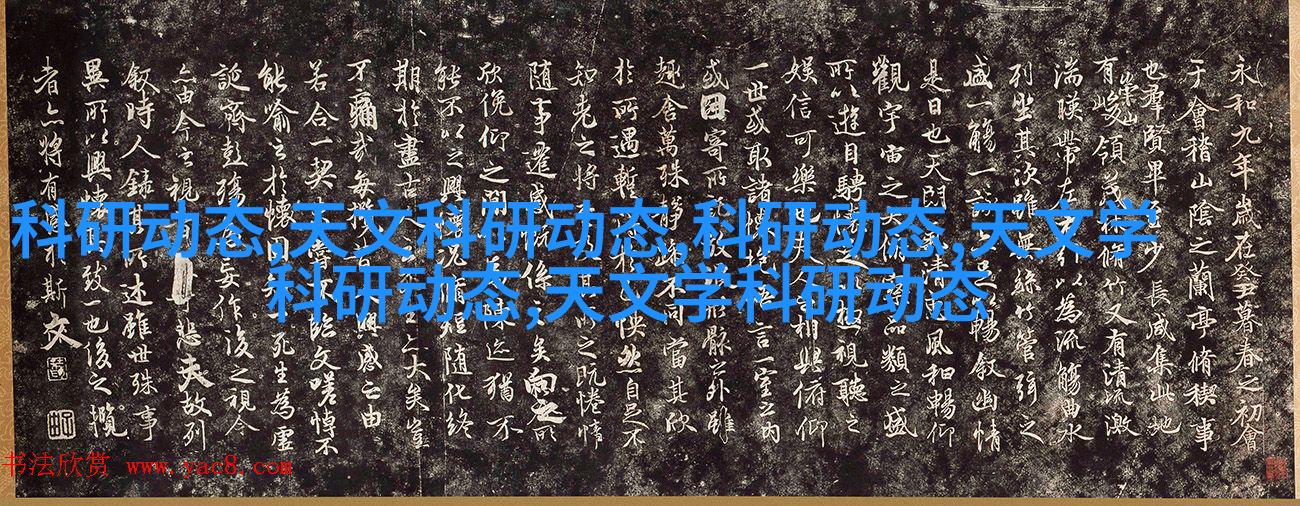 科研动态,天文科研动态,科研动态,天文学
科研动态,天文学科研动态
永和九年歲在癸丑暮春之初會
于會稽山陰之蘭亭脩稧事
也羣賢畢至少長咸集此地
有崇山峻領茂林脩竹又有清流激
湍暎帶左右引以為流觴曲水
列坐其次雖無絲竹管弦之
盛一觴一詠足以暢叙幽情
是日也天朗氣清惠風和暢仰
觀宇宙之大俯察品類之盛
所以遊目騁懷足以極視聽之
娛信可樂也夫人之相與俯仰
一世或取諸懷抱悟言一室之內
或因寄所託放浪形骸之外雖
趣舍萬殊靜躁不同當其欣
於所遇暫得於己怏然自足不
知老之將至及其所之既惓情
隨事遷感慨係之矣向之所
欣俛仰之閒以為陳迹猶不
能不以之興懷況脩短隨化終
期於盡古人云死生亦大矣豈
不痛哉每攬昔人興感之由
若合一契未嘗不臨文嗟悼不
能喻之於懷固知一死生為虛
誕齊彭殤為妄作後之視今
亦由今之視昔悲夫故列
叙時人錄其所述雖世殊事
異所以興懷其致一也後之攬
者亦將有感於斯文
书法欣赏 www.yac8.com